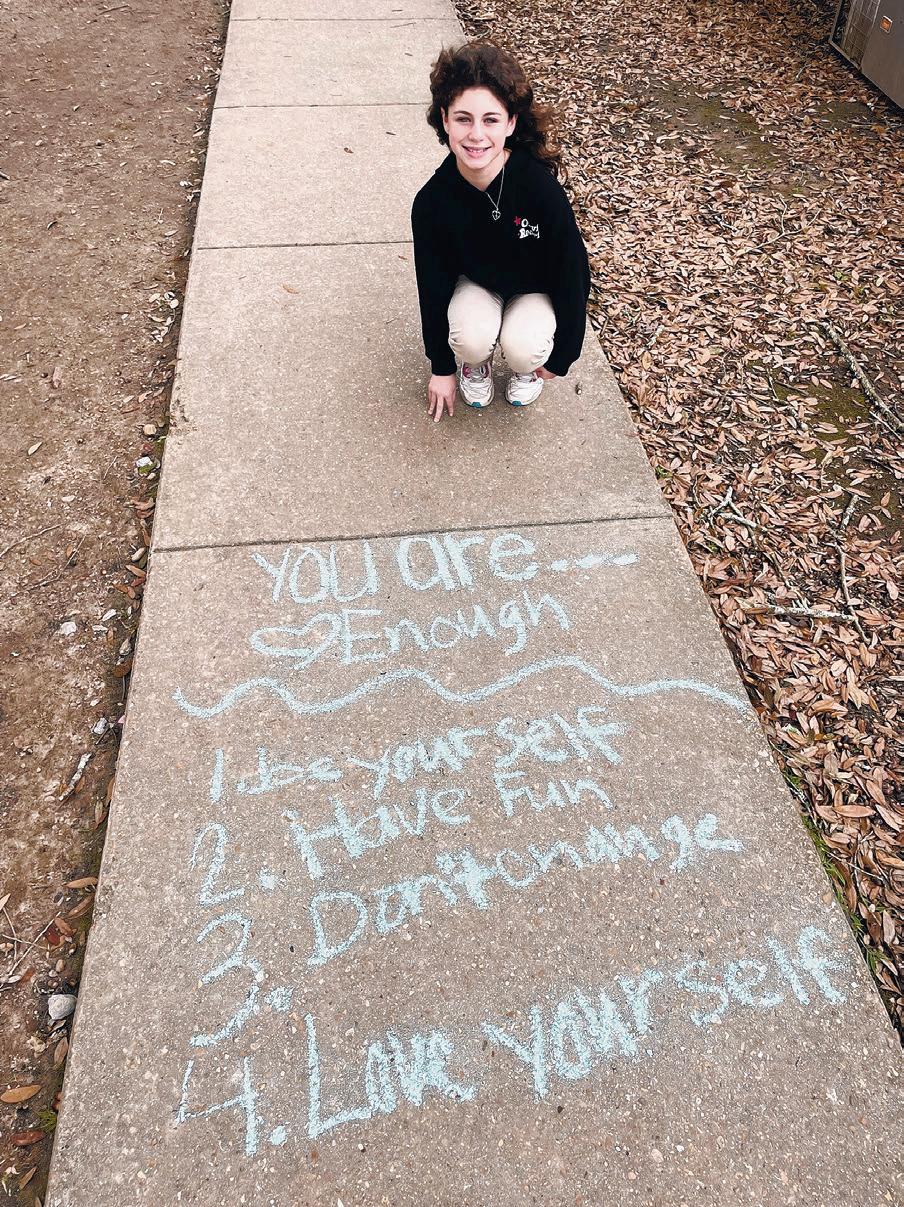 You are....
Enough
1. be yourself
2. Have Fun
3. Don't change
4. Love yourself